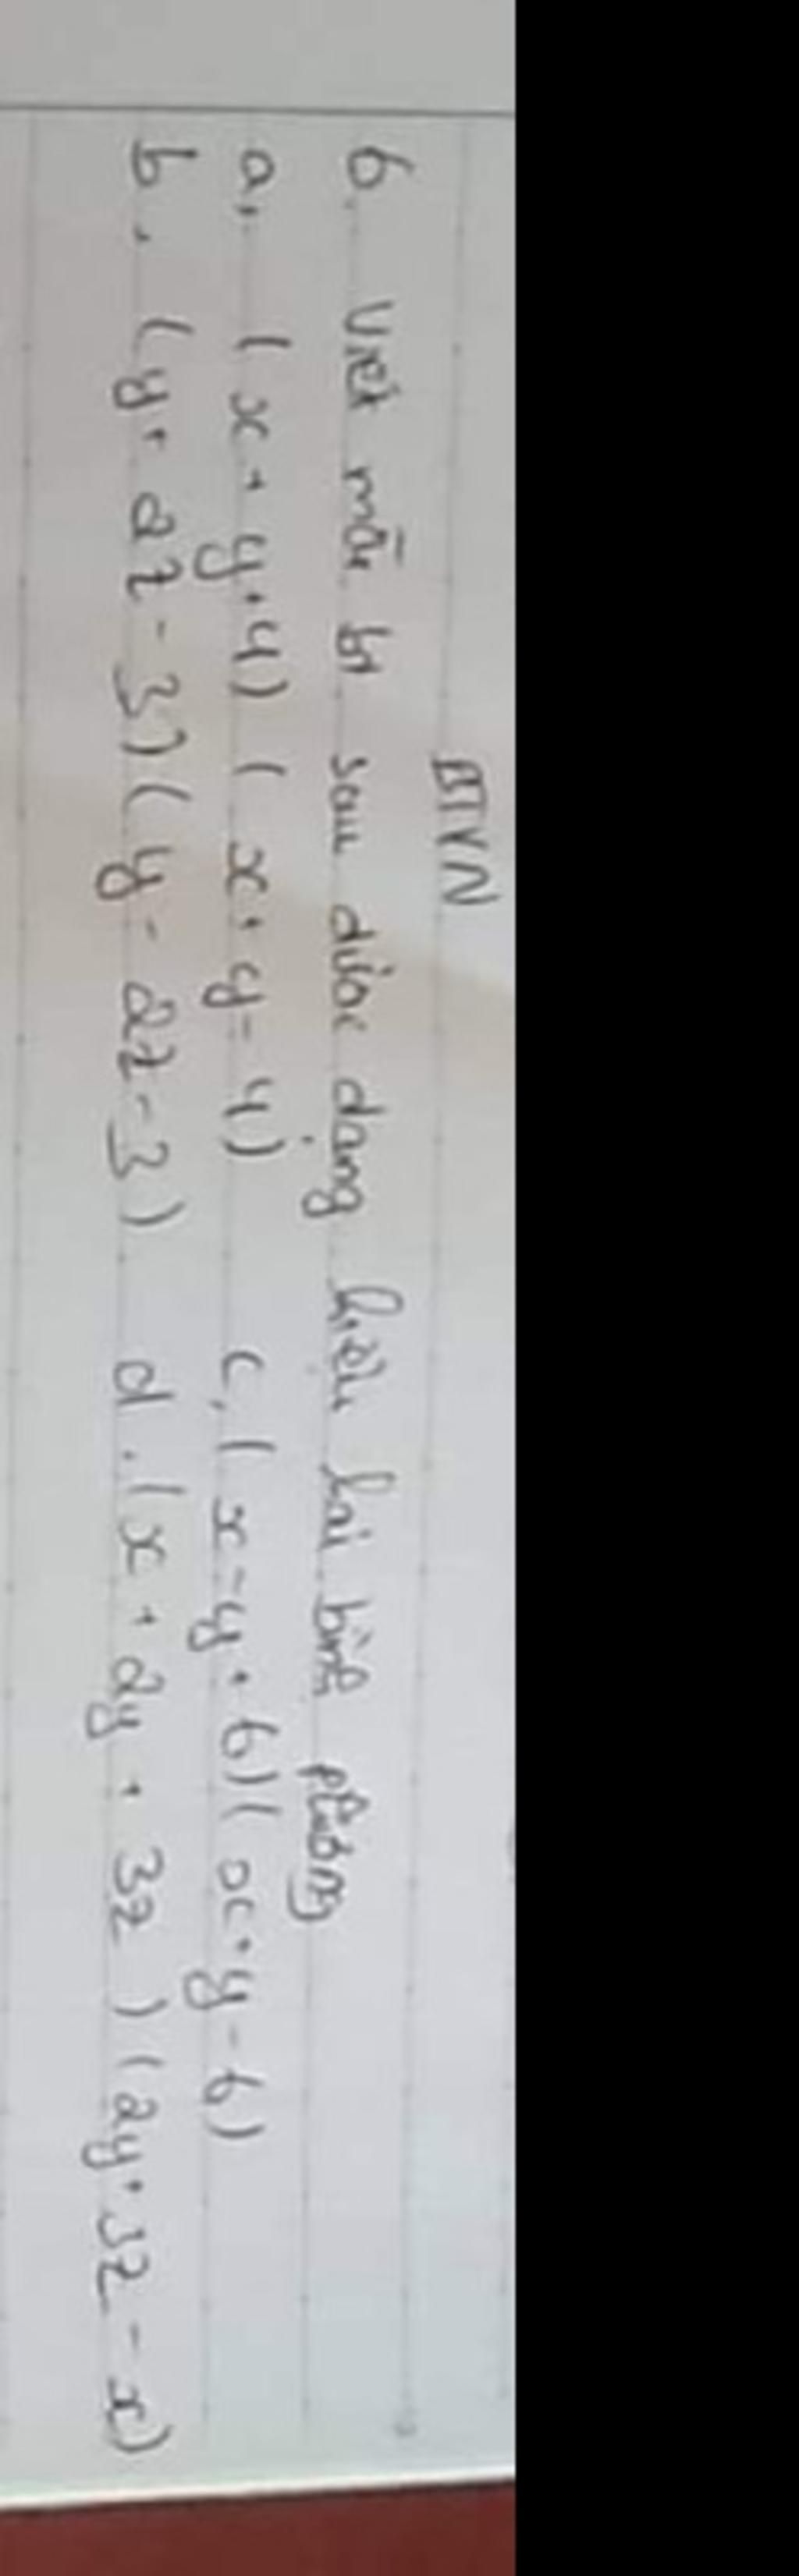 BTVN
6. Viết mỗi bt sau dưới dạng hiệu hai bình phương
a, (x+y+4)(x+y-4) c, (x-y+6)(x+y-6)
b, (y+2z-3)(y-2z-3) d. (x+2y+3z)(2y+3z-x)